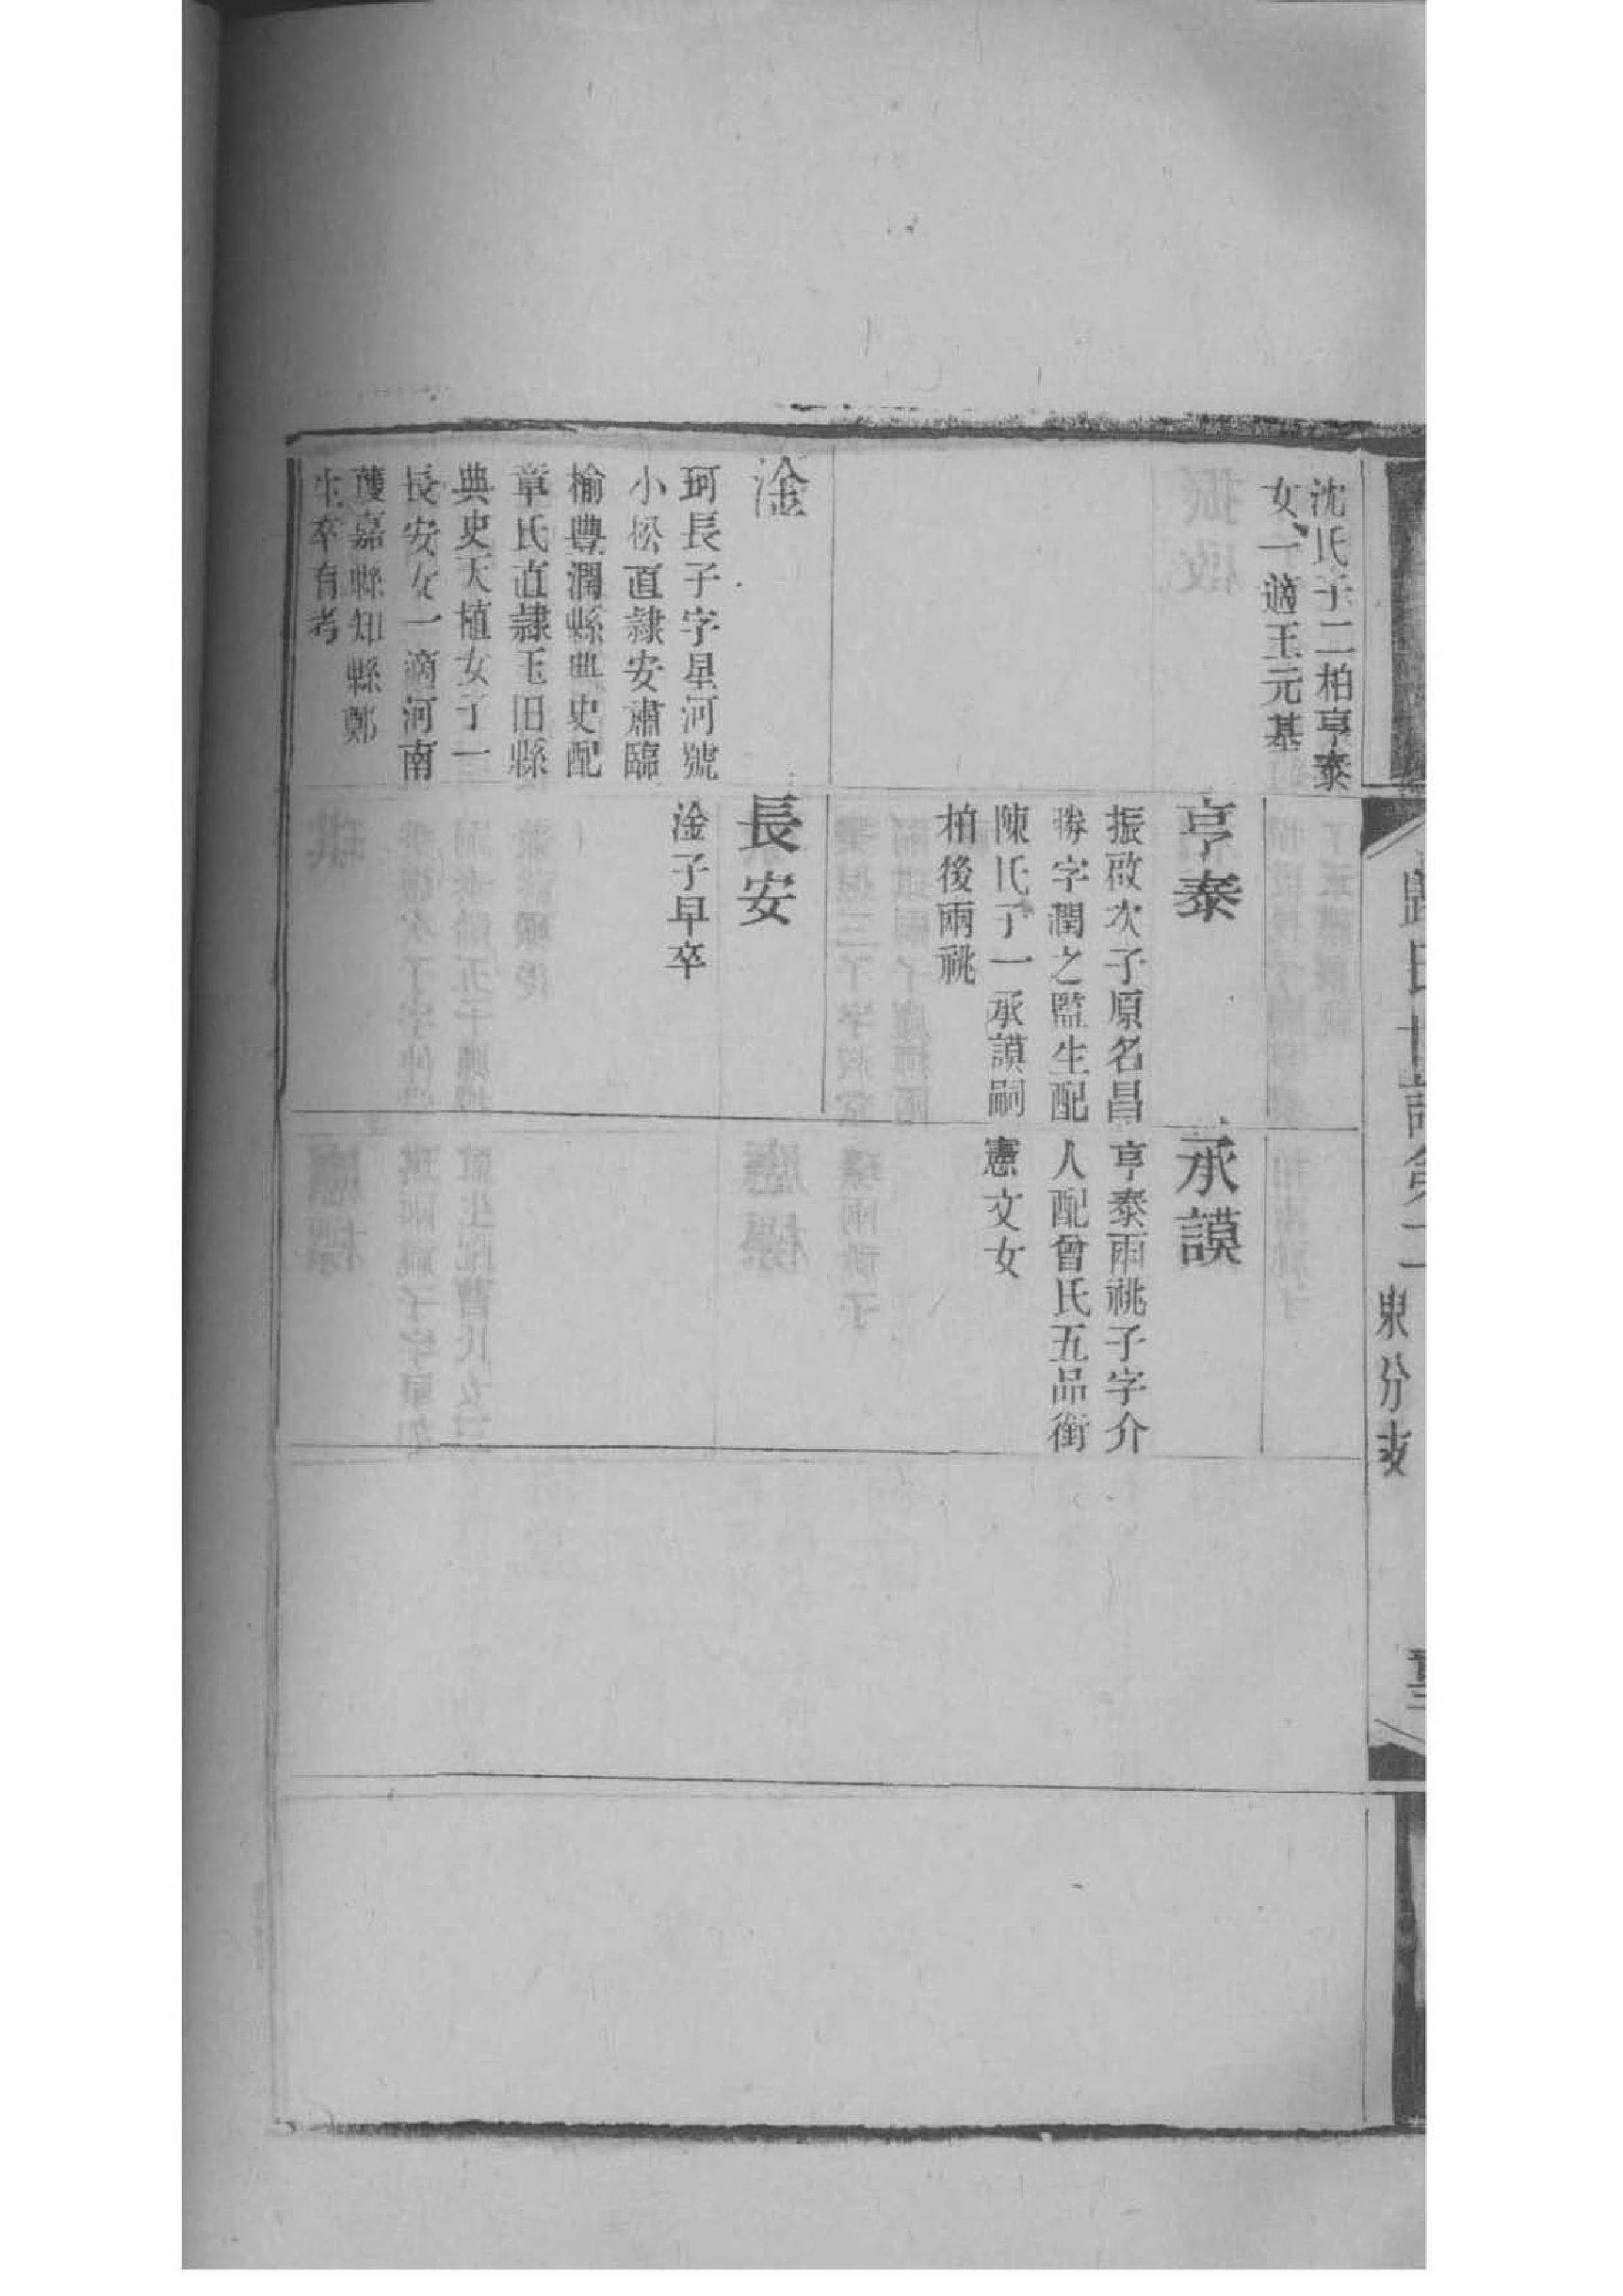 沈氏子二柏亨泰
女一適王元基
亨泰
振啟次子原名昌
字潤之監生配
陳氏子一承謨嗣
柏後兩祧
承謨
亨泰兩祧子字介
人配曾氏五品銜
憲文女
淦
珂長子字星河號
小松直隸安肅臨
榆豐潤縣典史配
章氏直隸玉田縣
典史天植女子一
長安女一適河南
獲嘉縣知縣鄭
生卒有考
長安
淦子早卒
氏世譜第二
東分支